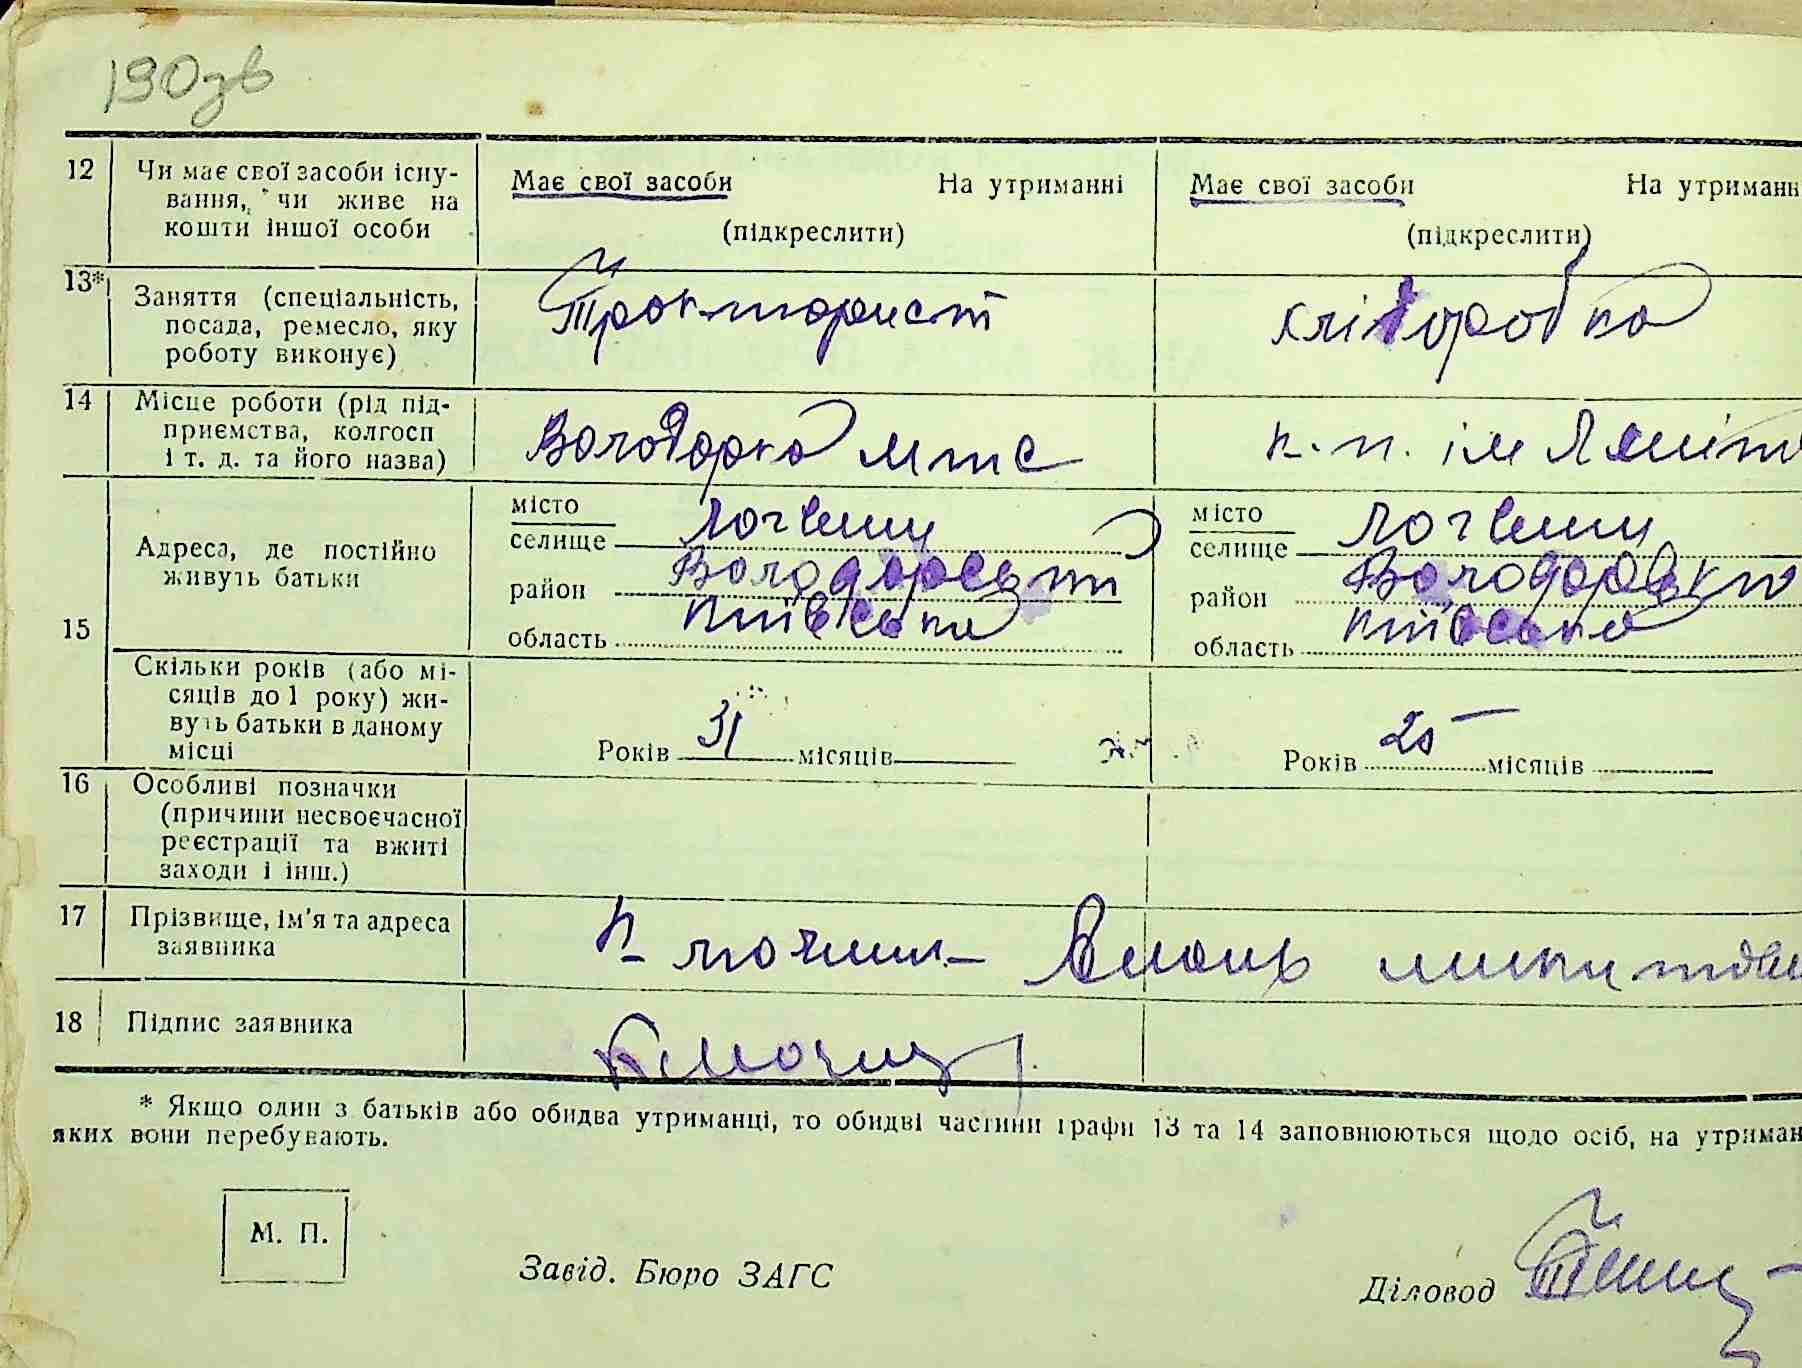 190зв
12 Чи має свої засоби існу-
вання, чи живе на
кошти іншої особи
Має свої засоби На утриманні
(підкреслити)
Має свої засоби На утриманн
(підкреслити)
13* Заняття (спеціальність,
посада, ремесло, яку
роботу виконує)
Трокторист
хліборобка
14 Місце роботи (рід під-
приємства, колгосп
і т. д. та його назва)
Володарка мтс
к. п. ім
15 Адреса, де постійно
живуть батьки
місто
селище Логвин
район Володарськи
область Київська
місто
селище Логвин
район Володарськи
область Київська
Скільки років (або мі-
сяців до 1 року) жи-
вуть батьки в даному
місці
Років 31 місяців
Років 25 місяців
16 Особливі позначки
(причини несвоєчасної
реєстрації та вжиті
заходи і інш.)
17 Прізвище, ім'я та адреса
заявника
18 Підпис заявника
* Якщо один з батьків або обидва утриманці, то обидві частини графи 13 та 14 заповнюються щодо осіб, на утриман
яких вони перебувають.
М. П.
Завід. Бюро ЗАГС
Діловод